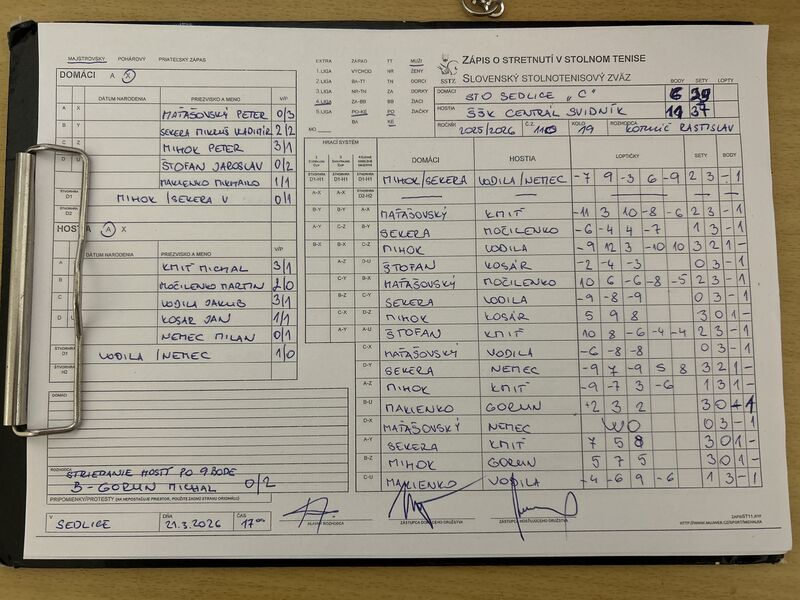 MAJSTROVSKÝ POHÁROVÝ PRIATEĽSKÝ ZÁPAS
DOMÁCI A X
DÁTUM NARODENIA PRIEZVISKO A MENO V/P
A X MAŤAŠOVSKÝ PETER 0/3
B Y SEKERA MIKULÁŠ VLADIMÍR 2/2
C Z MIHOK PETER 3/1
D U ŠTOFAN JAROSLAV 0/2
MAKIENKO MIKHAILO 1/1
ŠTVORHRA D1 MIHOK / SEKERA V 0/1
ŠTVORHRA D2
HOSTIA A X
DÁTUM NARODENIA PRIEZVISKO A MENO V/P
A KMIŤ MICHAL 3/1
B MOČILENKO MARTIN 2/0
C VODILA JAKUB 3/1
D U KOSÁR JÁN 1/1
NEMEC MILAN 0/1
ŠTVORHRA D1 VODILA / NEMEC 1/0
ŠTVORHRA H2
DOMÁCI
ROZHODCA
STRIEDANIE HOSTÍ PO 9 BODE
B - GORUN MICHAL 0/2
PRIPOMIENKY/PROTESTY (AK NEPOSTAČUJE PRIESTOR, POUŽITE ZADNÚ STRANU ORIGINÁLU)
V SEDLICE DŇA 21.3.2026 ČAS 17°°
HLAVNÝ ROZHODCA ZÁSTUPCA DOMÁCEHO DRUŽSTVA ZÁSTUPCA HOSŤUJÚCEHO DRUŽSTVA
EXTRA ZÁPAD TT MUŽI
1.LIGA VÝCHOD NR ŽENY
2.LIGA BA-TT TN DORCI
3.LIGA NR-TN ZA DORKY
4.LIGA ZA-BB BB ŽIACI
5.LIGA PO-KE PO ŽIAČKY
BA KE
MO
SSTZ
ZÁPIS O STRETNUTÍ V STOLNOM TENISE
SLOVENSKÝ STOLNOTENISOVÝ ZVÄZ
BODY SETY LOPTY
DOMÁCI STO SEDLICE „C“ 6 29
HOSTIA ŠŠK CENTRÁL SVIDNÍK 37
ROČNÍK 2025/2026 Č.Z. 110 KOLO 19 ROZHODCA RASTISLAV
HRACÍ SYSTÉM
DOMÁCI HOSTIA LOPTIČKY SETY BODY
D1-H1 D1-H1 D1-H1 MIHOK/SEKERA VODILA/NEMEC -7 9 -3 6 -9 2 3 - 1
A-X A-X D2-H2
B-Y B-Y A-X MAŤAŠOVSKÝ KMIŤ -11 3 10 -8 -6 2 3 - 1
A-Y C-Z B-Y SEKERA MOČILENKO -6 -4 4 -7 1 3 - 1
B-X B-X C-Z MIHOK VODILA -9 12 3 -10 10 3 2 1 -
A-Z D-U ŠTOFAN KOSÁR -2 -4 -3 0 3 - 1
C-Y B-X MAŤAŠOVSKÝ MOČILENKO 10 6 -6 -8 -5 2 3 - 1
B-Z C-Y SEKERA VODILA -9 -8 -9 0 3 - 1
C-X D-Z MIHOK KOSÁR 5 9 8 3 0 1 -
A-Y A-U ŠTOFAN KMIŤ 10 8 -6 -4 -4 2 3 - 1
C-X MAŤAŠOVSKÝ VODILA -6 -8 -8 0 3 - 1
D-Y SEKERA NEMEC -9 7 -9 5 8 3 2 1 -
A-Z MIHOK KMIŤ -9 -7 3 -6 1 3 1 -
B-U MAKIENKO GORUN 2 3 2 3 0
D-X MAŤAŠOVSKÝ NEMEC WO 0 3 - 1
A-Y SEKERA KMIŤ 7 5 8 3 0 1 -
B-Z MIHOK GORUN 5 7 5 3 0 1 -
C-U MAKIENKO VODILA -4 -6 9 -6 1 3 - 1
ZAPISST11.RTF